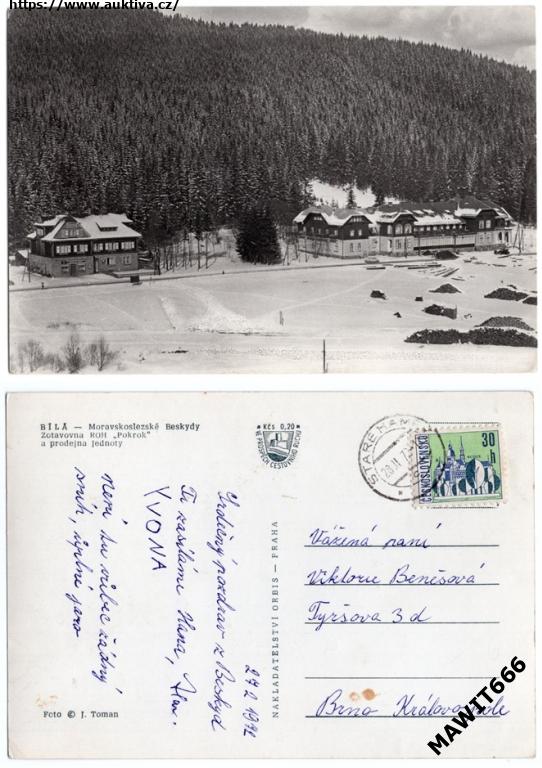 https://www.auktiva.cz/
BÍLÁ — Moravskoslezské Beskydy
Zotavovna ROH „Pokrok"
a prodejna Jednoty
Kčs 0,20
VE PROSPĚCH CESTOVNÍHO RUCHU
STARÉ HAM
28.II.7
ČESKOSLOVENSKO
30
h
27 2 1972
Srdečný pozdrav z Beskyd
Ti zasílám Hana,
YVONA
není tu vůbec žádný
sníh, úplné jaro
NAKLADATELSTVÍ ORBIS — PRAHA
Vážená paní
Viktorie Benešová
Tyršova 3 d
Brno Královo Pole
Foto © J. Toman
MAWIT666